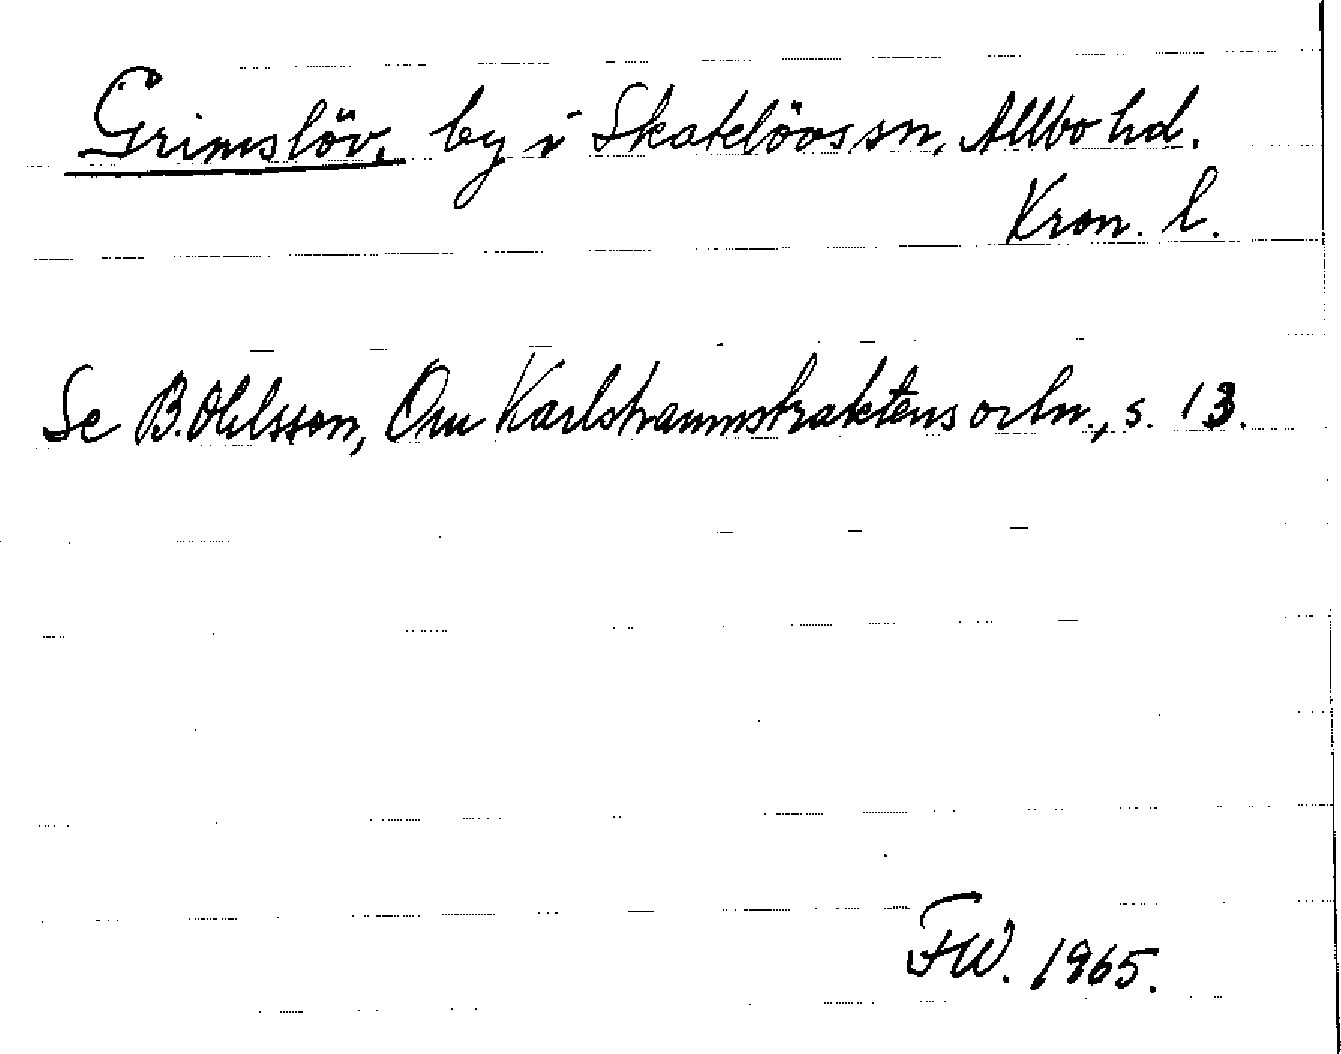 Grimslöv, by i Skatelövs sn, Allbo hd.
Kron. l.
Se B. Ohlsson, Om Karlshamnstraktens ortn., s. 13.
FW. 1965.